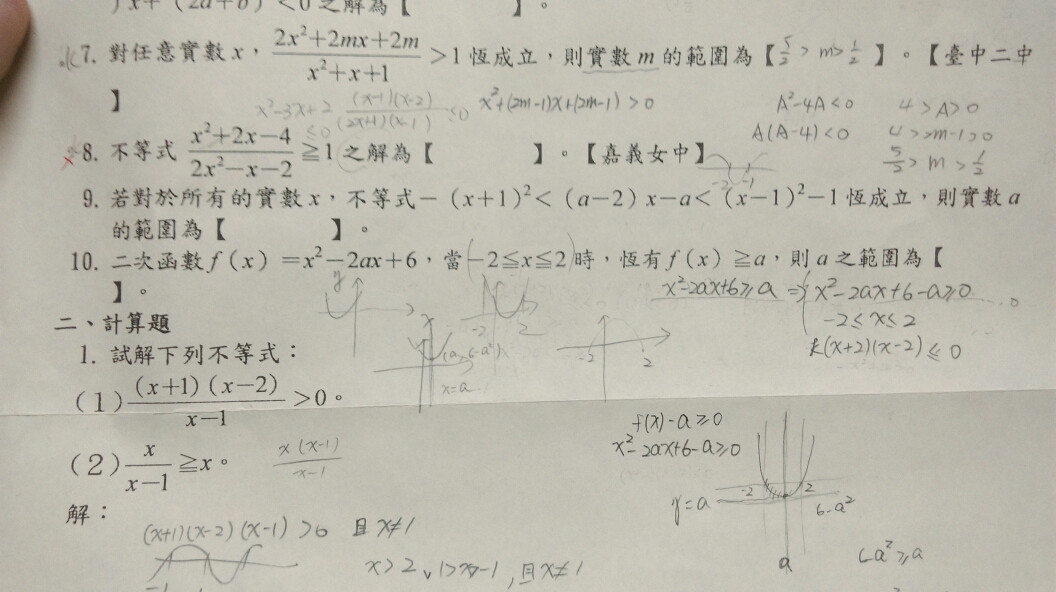 )x+(2a+b)<0之解為【 】。
7. 對任意實數x，(2x²+2mx+2m)/(x²+x+1)>1恆成立，則實數m的範圍為【5/2>m>1/2】。【臺中二中
】
x²-3x+2 (x-1)(x-2)/(2x+1)(x-1) ≤0 x²+(2m-1)x+(2m-1)>0 A²-4A<0 4>A>0
≤0 A(A-4)<0 4>2m-1>0
8. 不等式(x²+2x-4)/(2x²-x-2)≧1之解為【 】。【嘉義女中】 -2 -1 5/2>m>1/2
9. 若對於所有的實數x，不等式-(x+1)²<(a-2)x-a<(x-1)²-1恆成立，則實數a
的範圍為【 】。
10. 二次函數f(x)=x²-2ax+6，當-2≦x≦2時，恆有f(x)≧a，則a之範圍為【
】。
y -2 2 x²-2ax+6≥a ⇒ x²-2ax+6-a≥0
-2≤x≤2
k(x+2)(x-2)≤0
(a,6-a²) -2 2
x=a
二、計算題
1. 試解下列不等式：
(1) (x+1)(x-2)/(x-1)>0。
f(x)-a≥0
x²-2ax+6-a≥0
(2) x/(x-1)≧x。 x(x-1)/(x-1)
-2 2
y=a 6-a²
解：
(x+1)(x-2)(x-1)>0 且x≠1
a 6-a²≥a
x>2∨1>x>-1，且x≠1